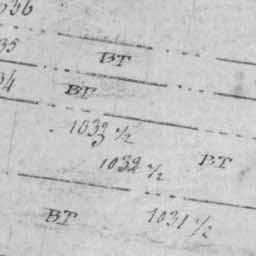 536
35
BT
34
BT
1033 1/2
1032 1/2
BT
BT
1031 1/2